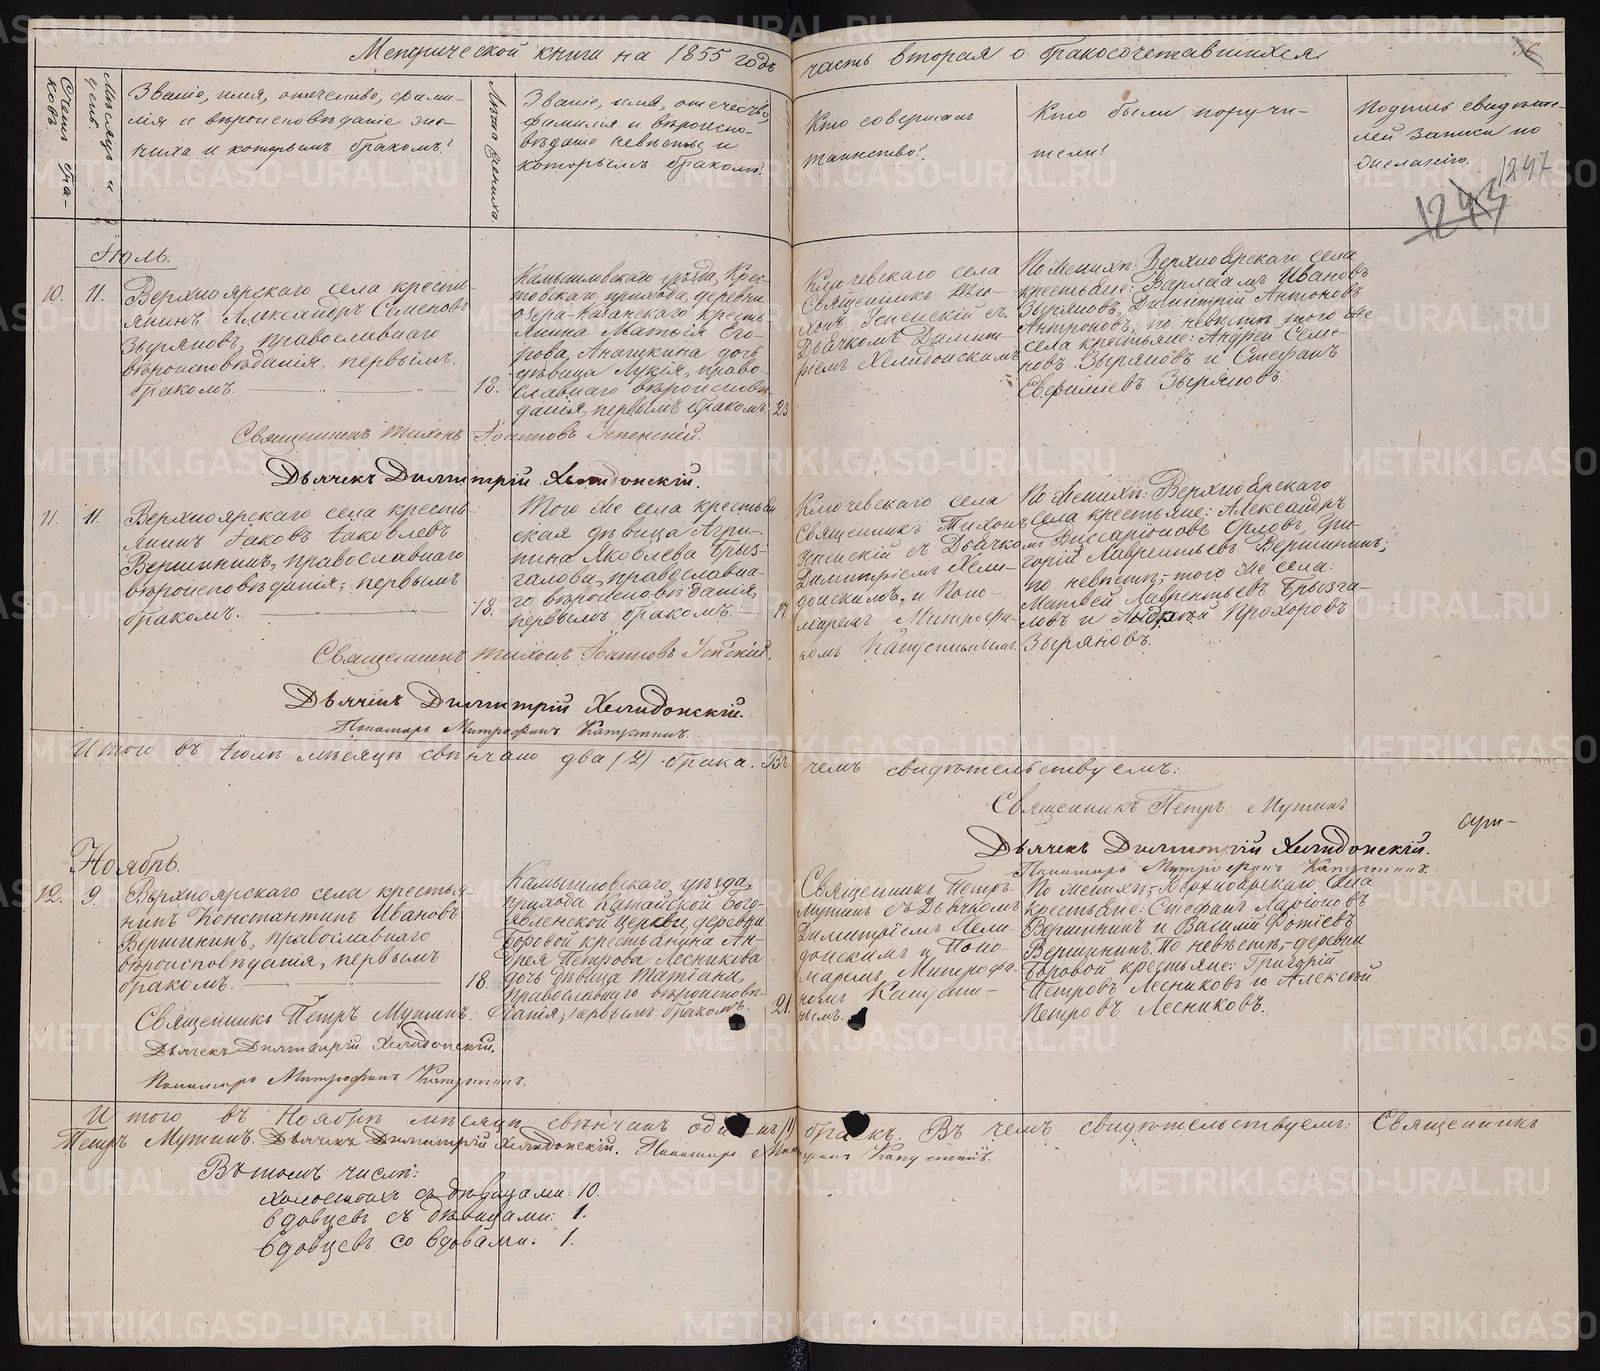 Метрической книги на 1855 годъ часть вторая о бракосочетавшихся
Счетъ бра-
ковъ.
Мѣсяцъ и
день.
Званіе, имя, отчество, фами-
лія и вѣроисповѣданіе же-
ниха и которымъ бракомъ?
Лѣта жениха.
Званіе, имя, отечество,
фамилія и вѣроиспо-
вѣданіе невѣсты и
которымъ бракомъ?
Кто совершалъ
таинство?
Кто были поручи-
тели?
Подпись свидѣте-
лей записи по
желанію.
1247
1243
Іюль.
10.
11.
Верхноярскаго села крестья-
янинъ Александръ Семеновъ
Зыряновъ, православнаго
вѣроисповѣданія, первымъ
бракомъ.
18.
Камышловскаго уѣзда, Крес-
товскаго прихода, деревни
Озера-Казанскаго кресть-
янина Матѳія Его-
рова, Анашкина дочь
дѣвица Лукія, право-
славнаго вѣроисповѣ-
данія, первымъ бракомъ.
23
Ключевскаго села
Священникъ Ти-
хонъ Успенскій съ
Дьячкомъ Димит-
ріемъ Хелидонскимъ
По женихѣ: Верхноярскаго села
крестьяне: Варлаамъ Ивановъ
Зыряновъ, Димитрій Антоновъ
Антроповъ, по невѣстѣ того же
села крестьяне: Андрей Семе-
новъ Зыряновъ и Стефанъ
Евфиміевъ Зыряновъ.
Священникъ Тихонъ Іоанновъ Успенскій.
Дьячекъ Димитрій Хелидонскій.
11.
11.
Верхноярскаго села крестья-
янинъ Іаковъ Іаковлевъ
Вершининъ, православнаго
вѣроисповѣданія; первымъ
бракомъ.
18.
Того же села крестьян-
ская дѣвица Агри-
пина Яковлева Брыз-
галова, православна-
го вѣроисповѣданія,
первымъ бракомъ.
Ключевскаго села
Священникъ Тихонъ
Успенскій съ Дьячкомъ
Димитріемъ Хели-
донскимъ, и Поно-
маремъ Митрофа-
номъ Капустинымъ.
По женихѣ: Верхноярскаго
села крестьяне: Александръ
Виссаріоновъ Орловъ, Гри-
горій Лаврентьевъ Вершининъ;
по невѣстѣ,- того же села:
Матвей Лаврентьевъ Брызга-
ловъ и Андрей Прохоровъ
Зыряновъ.
Священникъ Тихонъ Іоанновъ Успенскій.
Дьячекъ Димитрій Хелидонскій.
Пономарь Митрофанъ Капустинъ.
Итого въ Іюлѣ мѣсяцѣ свѣнчано два (2) брака. Въ чемъ свидѣтельствуемъ:
Священникъ Петръ Мутинъ
Дьячекъ Димитрій Хелидонскій.
Пономарь Митрофанъ Капустинъ.
Ноябрь.
12.
9.
Верхноярскаго села крестья-
нинъ Константинъ Ивановъ
Вершининъ, православнаго
вѣроисповѣданія, первымъ
бракомъ.
18.
Камышловскаго уѣзда,
прихода Катайской Бого-
явленской церкви, деревни
Боровой крестьянина Ан-
дрея Петрова Лесникова
дочь дѣвица Татіана,
православнаго вѣроисповѣ-
данія, первымъ бракомъ.
21.
Священникъ Петръ
Мутинъ съ Дьячкомъ
Димитріемъ Хели-
донскимъ и Поно-
маремъ Митрофа-
номъ Капусти-
нымъ.
По женихѣ,- Верхноярскаго села
крестьяне: Стефанъ Ларіоновъ
Вершининъ и Василій Фотіевъ
Вершининъ. По невѣстѣ,- деревни
Боровой крестьяне: Григорій
Петровъ Лесниковъ и Алексѣй
Петровъ Лесниковъ.
Священникъ Петръ Мутинъ.
Дьячекъ Димитрій Хелидонскій.
Пономарь Митрофанъ Капустинъ.
Итого въ Ноябрѣ мѣсяцѣ свѣнчанъ одинъ (1) бракъ. Въ чемъ свидѣтельствуемъ: Священникъ
Петръ Мутинъ. Дьячекъ Димитрій Хелидонскій. Пономарь Капустинъ.
Въ томъ числѣ:
холостыхъ съ дѣвицами: 10.
вдовцевъ съ дѣвицами: 1.
вдовцевъ со вдовами: 1.
METRIKI.GASO-URAL.RU